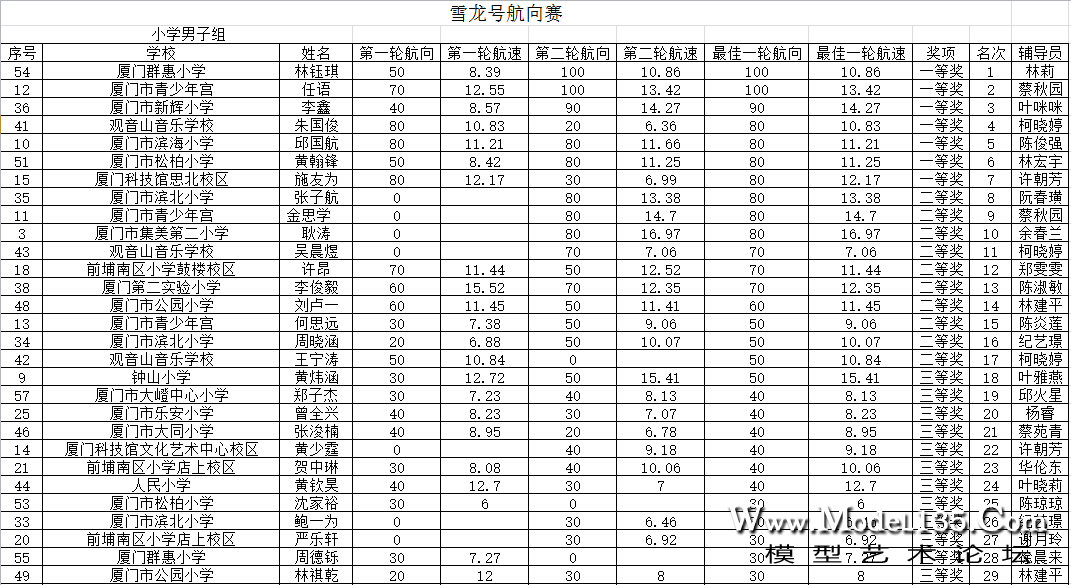 雪龙号航向赛
小学男子组
序号 学校 姓名 第一轮航向 第一轮航速 第二轮航向 第二轮航速 最佳一轮航向 最佳一轮航速 奖项 名次 辅导员
54 厦门群惠小学 林钰琪 50 8.39 100 10.86 100 10.86 一等奖 1 林莉
12 厦门市青少年宫 任语 70 12.55 100 13.42 100 13.42 一等奖 2 蔡秋园
36 厦门市新辉小学 李鑫 40 8.57 90 14.27 90 14.27 一等奖 3 叶咪咪
41 观音山音乐学校 朱国俊 80 10.83 20 6.36 80 10.83 一等奖 4 柯晓婷
10 厦门市滨海小学 邱国航 80 11.21 80 11.66 80 11.21 一等奖 5 陈俊强
51 厦门市松柏小学 黄翰锋 50 8.42 80 11.25 80 11.25 一等奖 6 林宏宇
15 厦门科技馆思北校区 施友为 80 12.17 30 6.99 80 12.17 一等奖 7 许朝芳
35 厦门市滨北小学 张子航 0 80 13.38 80 13.38 二等奖 8 阮春璜
11 厦门市青少年宫 金思学 0 80 14.7 80 14.7 二等奖 9 蔡秋园
3 厦门市集美第二小学 耿涛 0 80 16.97 80 16.97 二等奖 10 余春兰
43 观音山音乐学校 吴晨煜 0 70 7.06 70 7.06 二等奖 11 柯晓婷
18 前埔南区小学鼓楼校区 许昂 70 11.44 50 12.52 70 11.44 二等奖 12 郑雯雯
38 厦门第二实验小学 李俊毅 60 15.52 70 12.35 70 12.35 二等奖 13 陈淑敏
48 厦门市公园小学 刘卢一 60 11.45 50 11.41 60 11.45 二等奖 14 林建平
13 厦门市青少年宫 何思远 30 7.38 50 9.06 50 9.06 二等奖 15 陈炎莲
34 厦门市滨北小学 周晓涵 20 6.88 50 10.07 50 10.07 二等奖 16 纪艺璟
42 观音山音乐学校 王宁涛 50 10.84 0 50 10.84 二等奖 17 柯晓婷
9 钟山小学 黄炜涵 30 12.72 50 15.41 50 15.41 三等奖 18 叶雅燕
57 厦门市大嶝中心小学 郑子杰 30 7.23 40 8.13 40 8.13 三等奖 19 邱火星
25 厦门市乐安小学 曾全兴 40 8.23 30 7.07 40 8.23 三等奖 20 杨睿
46 厦门市大同小学 张浚楠 40 8.95 20 6.78 40 8.95 三等奖 21 蔡苑青
14 厦门科技馆文化艺术中心校区 黄少霆 0 40 9.18 40 9.18 三等奖 22 许朝芳
21 前埔南区小学店上校区 贺中琳 30 8.08 40 10.06 40 10.06 三等奖 23 华伦东
44 人民小学 黄钦昊 40 12.7 30 7 40 12.7 三等奖 24 叶晓莉
53 厦门市松柏小学 沈家裕 30 6 0 30 6 三等奖 25 陈琼琼
33 厦门市滨北小学 鲍一为 0 30 6.46 26
20 前埔南区小学店上校区 严乐轩 0 30 6.92 30 6.92 三等奖 27 谢月玲
55 厦门群惠小学 周德铄 30 7.27 0 30 28 晨来
49 厦门市公园小学 林祺乾 20 12 30 8 30 8 三等奖 29 林建平
Www.Model135.Com
模型艺术论坛